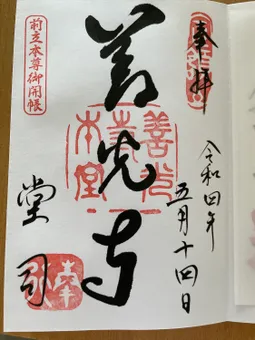 奉拝
令和四年
五月十四日
善光寺
善光寺本堂
堂司
前立本尊御開帳